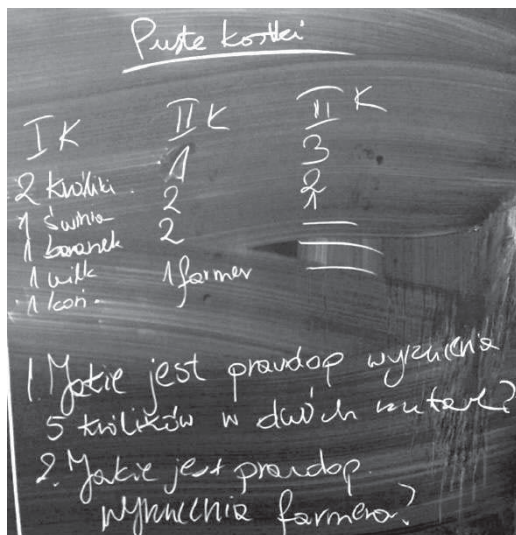 Puste kostki
I K II K III K
2 króliki 1 3
1 świnia 2 2
1 baranek 2 1
1 wilk 1 farmer
1 koń
1. Jakie jest prawdop wyrzucenia
5 królików w dwóch rzutach?
2. Jakie jest prawdop.
wyrzucenia farmera?